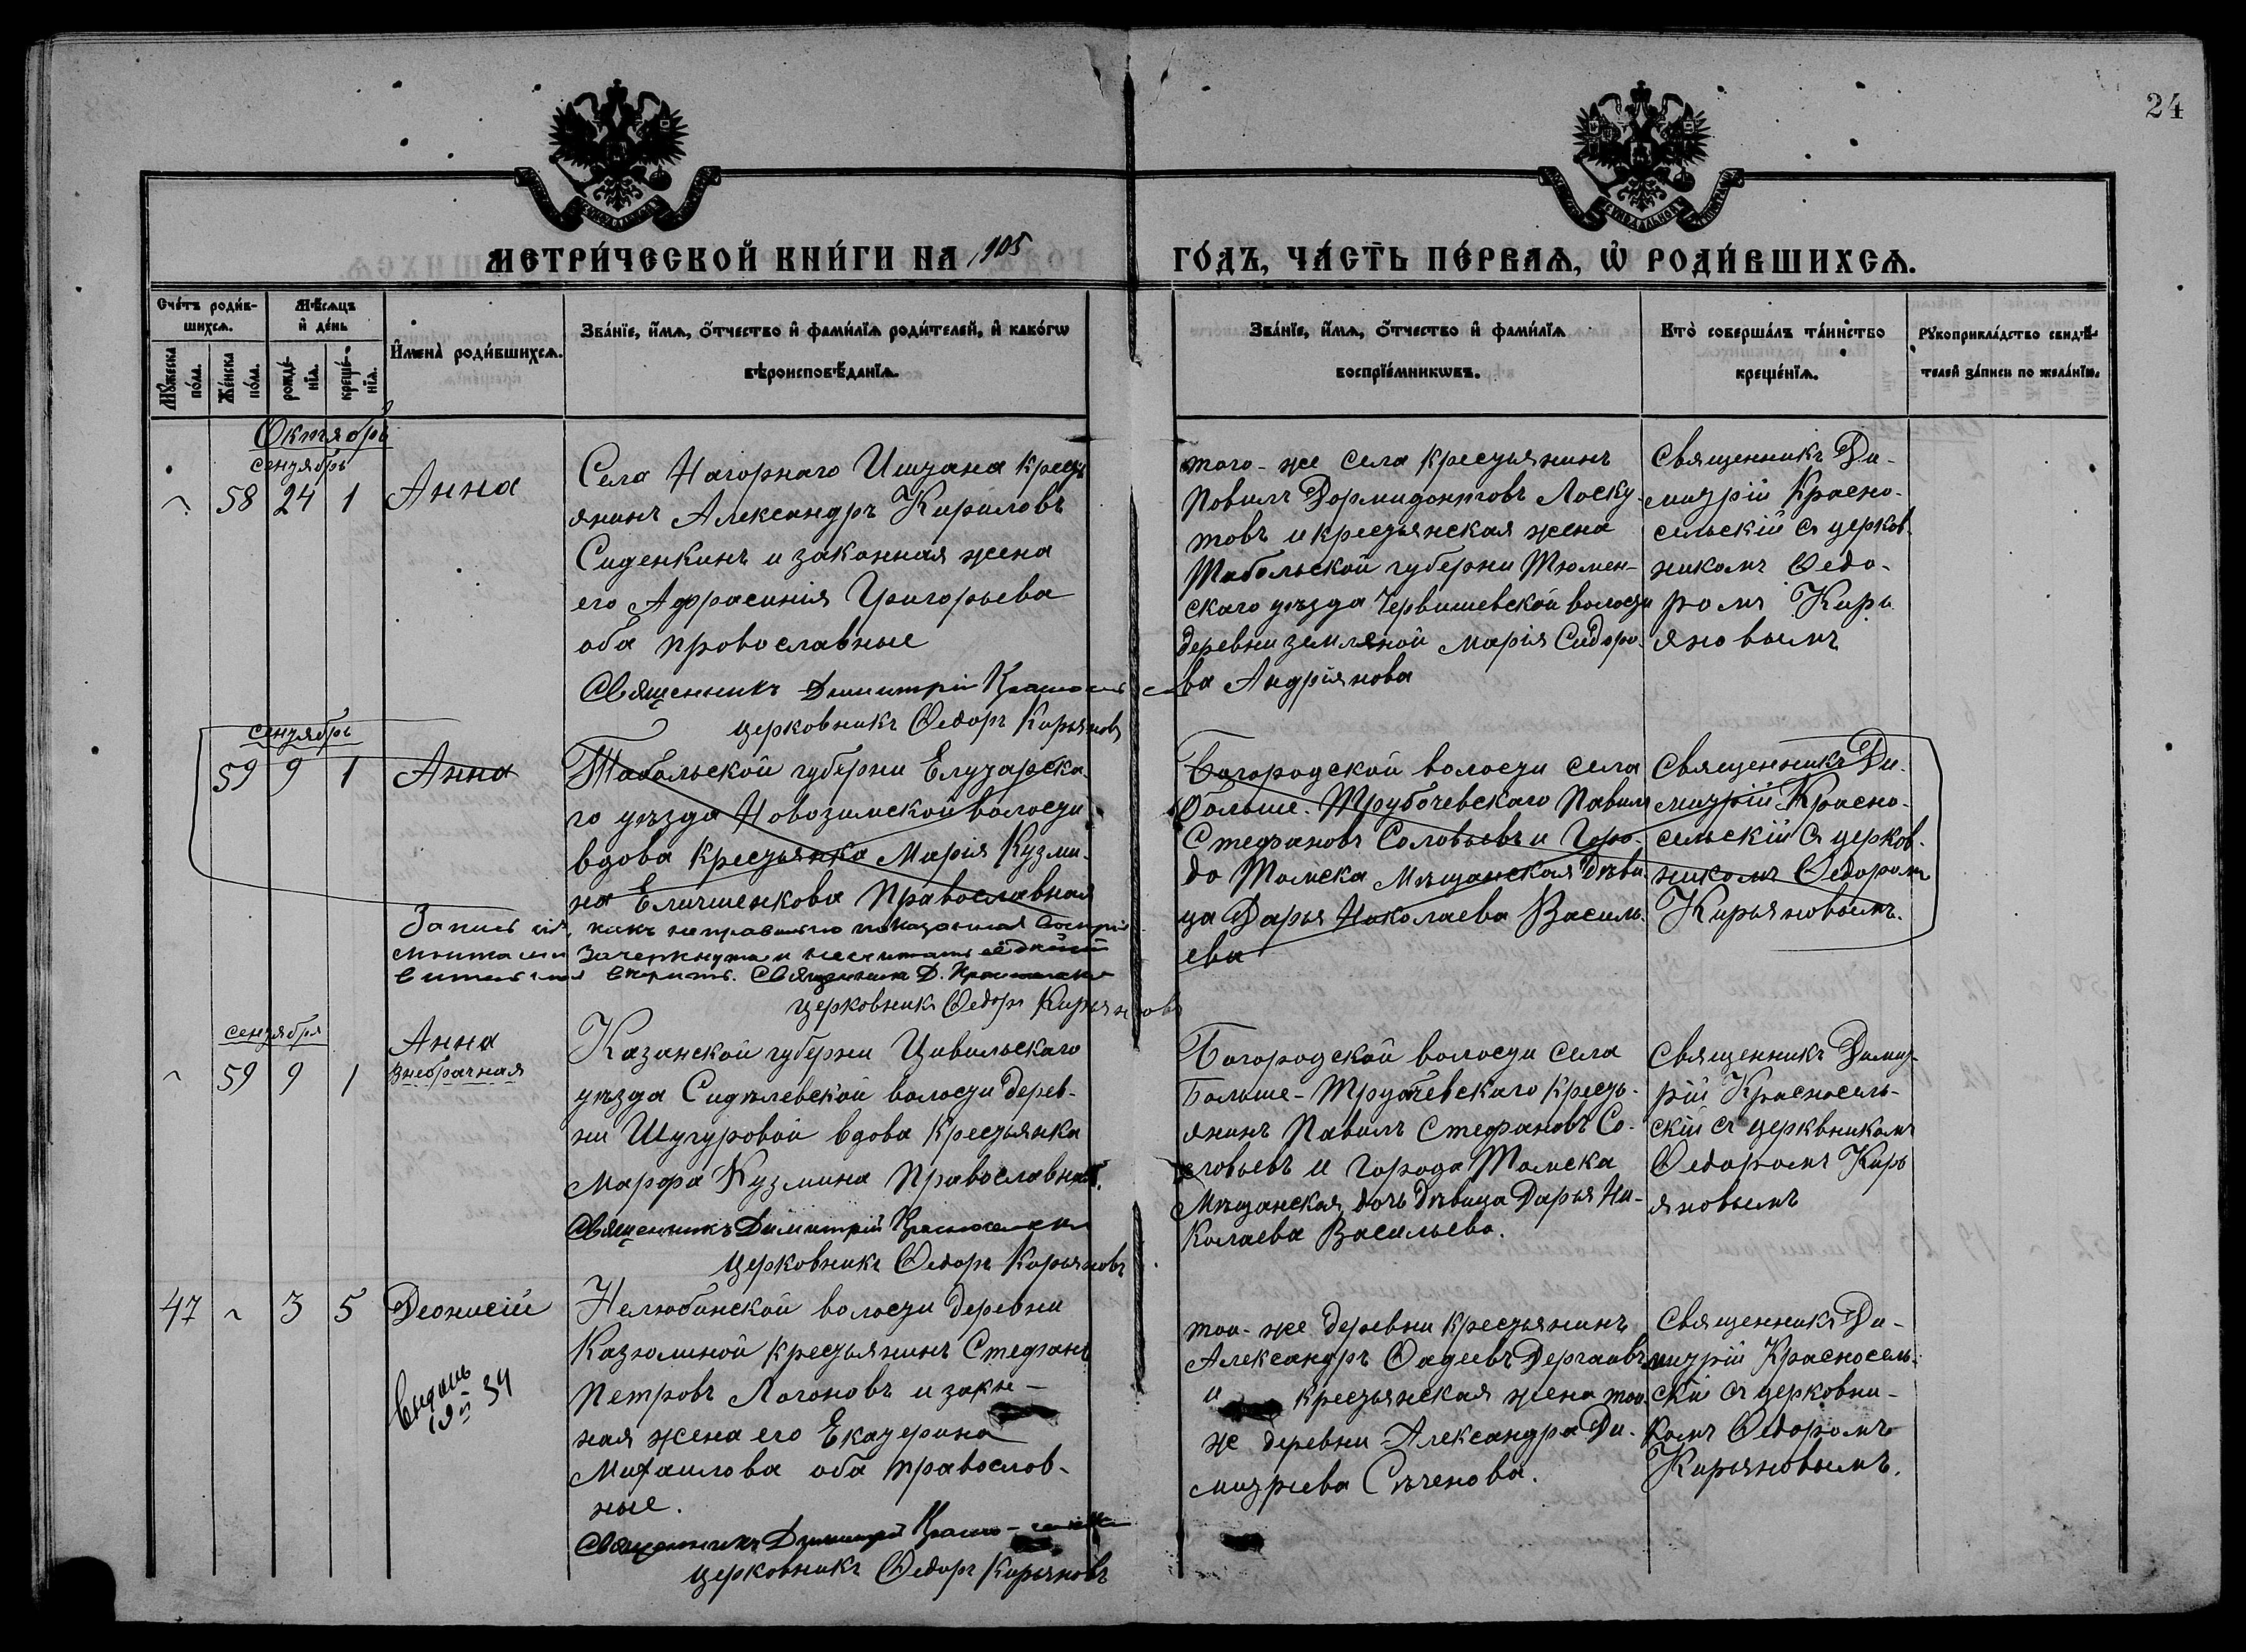 24
МЕТРИ́ЧЕСКОЙ КНИ́ГИ НА 1905
ГО́ДЪ, ЧА́СТЬ ПЕ́РВАѦ, Ѡ РОДИ́ВШИХСѦ.
Сче́тъ роди́в-
шихсѧ.
Мꙋ́жеска по́ла.
Же́нска по́ла.
Мѣ́сѧцъ и де́нь
рожде́-нїѧ.
креще́-нїѧ.
Имена̀ роди́вшихсѧ.
Зва́нїе, и́мѧ, о́тчество и фами́лїѧ роди́телей, и како́гѡ
вѣроисповѣ́данїѧ.
Зва́нїе, и́мѧ, о́тчество и фами́лїѧ
воспрїе́мникѡвъ.
Кто̀ соверша́лъ та́инство
креще́нїѧ.
Рꙋкоприкла́дство свидѣ́-
телей за́писи по жела́нїю.
Октябрь
сентябрь
58 24 1 Анна
Села Нагорнаго Иштана крестья
янинъ Александръ Кириловъ
Сиденкинъ и законная жена
его Афрасинія Григорьева
оба провославные
Священникъ Димитрій
церковникъ Ѳедоръ Кирьяновъ
того-же села крестьянинъ
Повилъ Дормидонтовъ Лоску-
товъ и крестьянская жена
Тобольской губерни Тюмен-
скаго уѣзда Червишевской волости
деревни земляной Марія Сидоро-
ва Андріянова
Священникъ Ди-
митрій Красно-
сельскій съ церков-
никомъ Ѳедо-
ромъ Кирь
яновымъ
сентябрь
59 9 1 Анна
Тобольской губерни Елуторска-
го уѣзда Новозимской волости
вдова крестьянка Марія Кузми-
на Еличшенкова Православная
Богородской волости села
Больше-Трубочевскаго Павилъ
Стефановъ Соловьевъ и Горо-
да Томска Мѣщанская дѣви-
ца Дарья Николаева Василь-
ева
Священникъ Ди-
митрій Красно-
сельскій съ церков-
никомъ Ѳедоромъ
Кирьяновымъ.
Запись сія, какъ неправильно показанная
зачеркнута и несчитать
Священникъ Д.
церковникъ Ѳедоръ Кирьяновъ
сентября
59 9 1 Анна
Внебрачная
Казанской губерни Цивильскаго
уѣзда Сидѣлевской волости дерев-
ни Шугуровой вдова крестьянка
Марфа Кузмина Православная.
Священникъ Димитрій
церковникъ Ѳедоръ Кирьяновъ
Богородской волости села
Больше-Трубочевскаго кресть-
янинъ Павилъ Стефановъ Со-
ловьевъ и города Томска
Мѣщанская дочь дѣвица Дарья Ни-
колаева Васильева.
Священникъ Димит-
рій Красносель-
скій съ церквникомъ
Ѳедоромъ Кирь
яновымъ
47 3 5 Деонисій
Нелюбинской волости деревни
Казюлиной крестьянинъ Стефанъ
Петровъ Логоновъ и закн-
ная жена его Екатерина
Михаилова оба православ-
ные.
Священникъ Димитрій
церковникъ Ѳедоръ Кирьяновъ
тои-же деревни крестьянинъ
Александръ Ѳадеевъ Дергаовъ
и крестьянская жена тои
же деревни Александра Ди-
митріева Сѣченова.
Священникъ Ди-
митрій Красносель-
скій съ церковни-
комъ Ѳедоромъ
Кирьяновымъ.